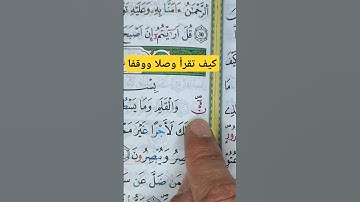 ٱلرَّحْمَٰنُ ءَامَنَّا بِهِۦ وَعَلَيْهِ
قُلْ أَرَءَيْتُمْ إِنْ أَصْبَحَ
كيف تقرأ وصلا ووقفا
بِسْ
نٓ وَٱلْقَلَمِ وَمَا يَسْطُ
لَكَ لَأَجْرًا غَيْرَ مَمْ
وَيُبْصِرُونَ
مَن ضَلَّ عَن سَ